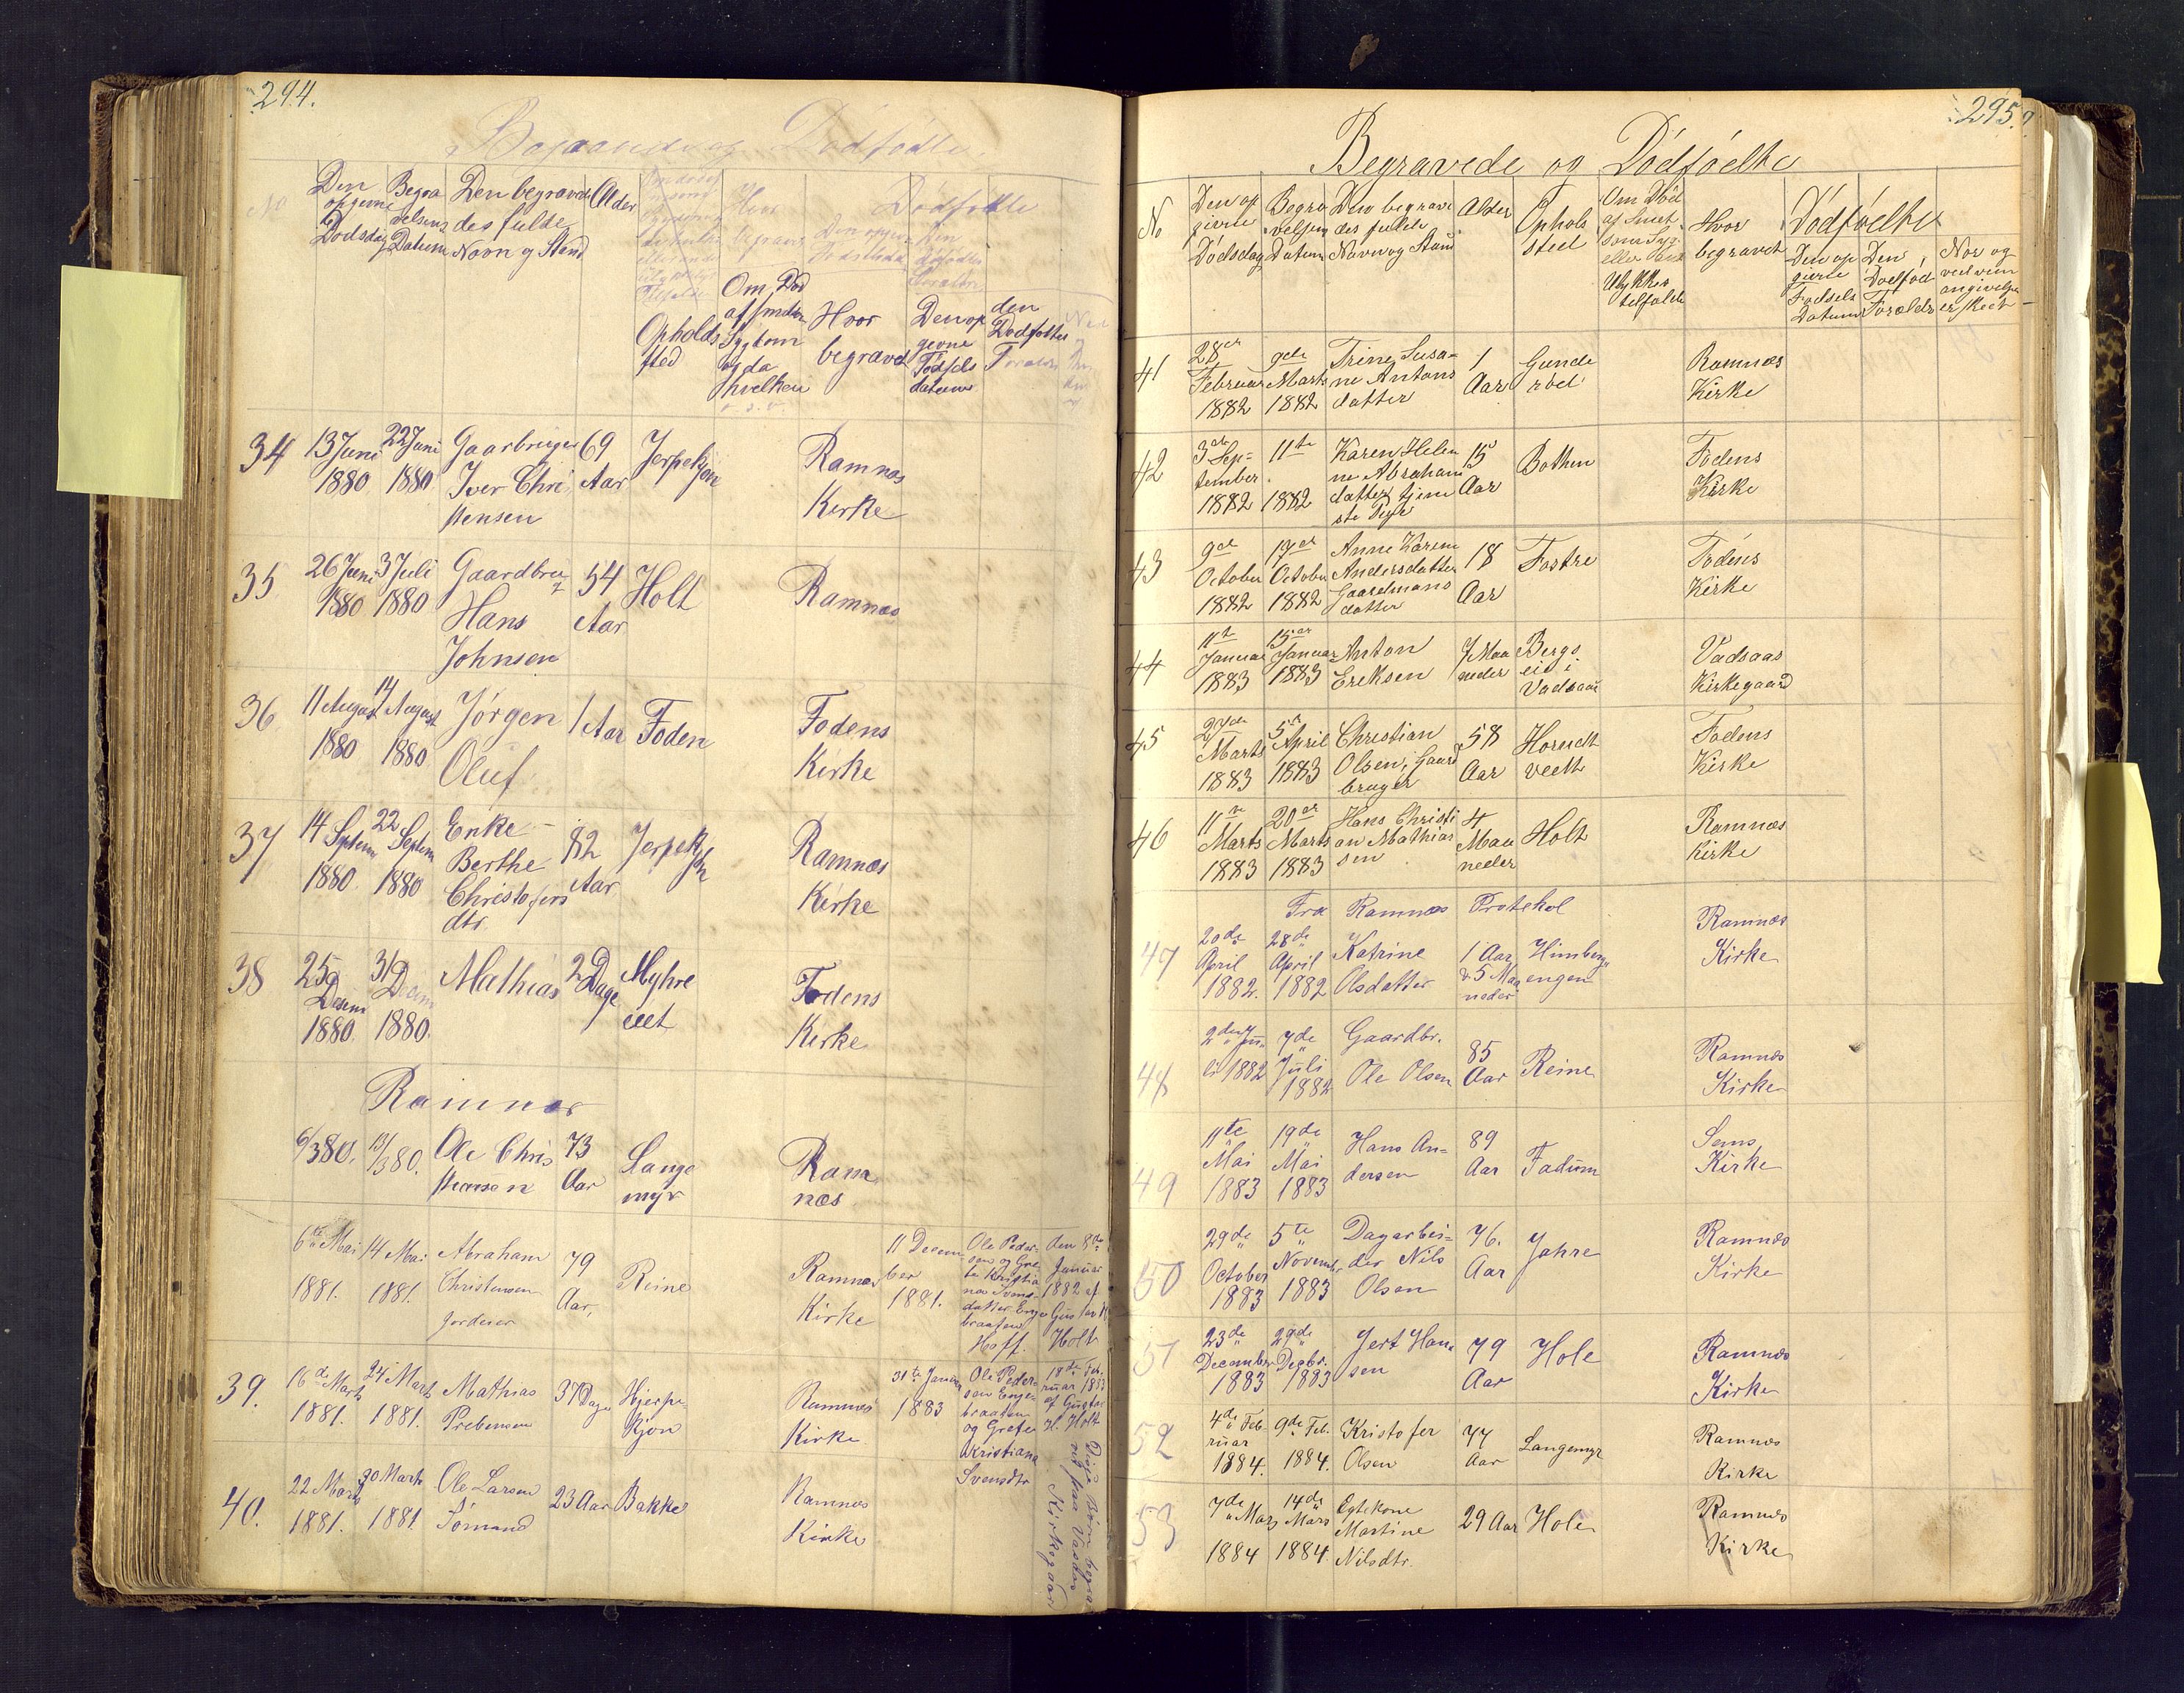 294.
Begravede og Dødfødte.
No
Den opgivne Dødsdag
Begravelsens Datum
Den begravedes fulde Navn og Stand
Alder
Opholdssted
Om Død af smitsom Sygdom og da hvilken
Hvor begravet
Dødfødte
Den opgivne Fødsels datum
den Dødfødtes
34 13 Juni 1880 22 Juni 1880 Gaarbruger Iver Christensen 69 Aar Jerpekjøn Ramnæs Kirke
35 26 Juni 1880 3 Juli 1880 Gaardbru Hans Johnsen 54 Aar Holt Ramnæs
36 11 August 1880 14 August 1880 Jørgen Oluf 1 Aar Foden Fodens Kirke
37 14 Septem 1880 22 Septem 1880 Enke Berthe Christofers dtr. 82 Aar Jerpekjøn Ramnæs Kirke
38 25 Desem 1880. 31 Decem 1880. Mathias 2 Dage Myhre eiet Fodens Kirke
Ramnæs
6/3 80. 13/3 80. Ole Christensen 73 Aar Langemyr Ramnæs
6te Mai 1881. 14 Mai 1881. Abraham Christensen 79 Aar, Reine Ramnæs Kirke 11 December 1881. Ole Pedersen og Grete Kristiane Svensdatter Engebraaten Hoff. den 8de Januar 1882 af Gustav H Holt
39. 16de Marts 1881. 24 Marts 1881. Mathias Prebensen 37 Dage Hjerpekjøn Ramnæs Kirke 31te Januar 1883 Ole Pedersen Engebraaten og Grete Kristiane Svensdtr 18de Februar 1883 af Gustav H. Holt
40. 22 Marts 1881. 30 Marts 1881 Ole Larsen Sømand 23 Aar Bakke Ramnæs Kirke
Kirkegaar
295.
Begravede og Dødfødte
No
Den opgivne Dødsdag
Begravelsens Datum
Den begravedes fulde Navn og Stand
Alder
Opholssted
Om Død af Smit
Ulykkes tilfælde
Hvor begravet
Dødfødte
Den opgivne Fødsels Datum
Den Dødfød Forældre
Nor og ved vem angivelse er skeet
41 28de Februar 1882 9de Marts 1882 Trine Susane Antonsdatter 1 Aar Gunderød Ramnæs Kirke
42 3de September 1882 11te 1882 Karen Helene Abrahamdatter tjeneste Pige 15 Aar Bothen Fodens Kirke
43 9de October 1882 17de October 1882 Anne Karine Andersdatter Gaardmansdatter 18 Aar Fastre Fodens Kirke
44 11te Januar 1883 15de Januar 1883 Anton Eriksen 7 Maaneder Bergs eie i Vadsaas Vadsaas Kirkegaard
45 27de Marts 1883 5te April 1883 Christian Olsen, Gaardbruger 58 Aar Horndt veelt Fodens Kirke
46 11te Marts 1883 20de Marts 1883 Hans Christian Mathiassen 4 Maaneder Holt Ramnæs Kirke
Fra Ramnæs Protekol
47 20de April 1882. 28de April 1882 Katrine Olsdatter 1 Aar & 5 Maaneder Himbergengen Ramnæs Kirke
48 2den Juli 1882 7de Juli 1882 Gaardbr. Ole Olsen 85 Aar Reine Ramnæs Kirke
49 11te Mai 1883 19de Mai 1883 Hans Andersen 89 Aar Fadum Sems Kirke
50 29de October 1883 5te November 1883 Dagarbeider Nils Olsen 76. Aar Jahre Ramnæs Kirke
51 23de December 1883 29de Decbr. 1883 Jert Hansen 79 Aar Hole Ramnæs Kirke
52 4de Februar 1884. 9de Feb. 1884. Kristofer Olsen 77 Aar Langemyr Ramnæs Kirke
53 7de Mars 1884 14de Mars 1884. Egtekone Martine Nilsdtr. 29 Aar Hole Ramnæs Kirke